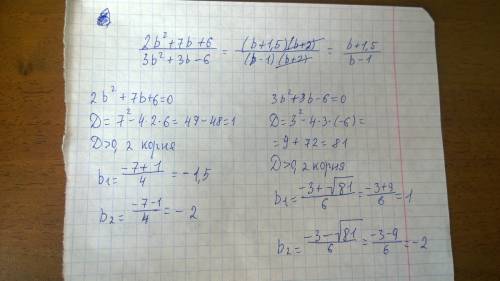 (2b²+7b+6)/(3b²+3b-6) = (b+1,5)(b+2)/(b-1)(b+2) = (b+1,5)/(b-1)
2b²+7b+6=0
D=7²-4·2·6=49-48=1
D>0, 2 корня
b₁=(-7+1)/4=-1,5
b₂=(-7-1)/4=-2
3b²+3b-6=0
D=3²-4·3·(-6)=
=9+72=81
D>0, 2 корня
b₁=(-3+√81)/6=(-3+9)/6=1
b₂=(-3-√81)/6=(-3-9)/6=-2